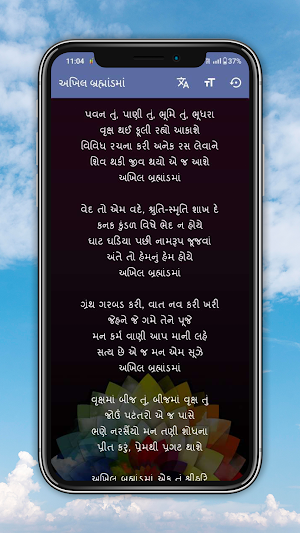 11:04
37%
અખિલ બ્રહ્માંડમાં
પવન તું, પાણી તું, ભૂમિ તું, ભૂધરા
વૃક્ષ થઈ ફૂલી રહ્યો આકાશે
વિવિધ રચના કરી અનેક રસ લેવાને
શિવ થકી જીવ થયો એ જ આશે
અખિલ બ્રહ્માંડમાં
વેદ તો એમ વદે, શ્રુતિ-સ્મૃતિ શાખ દે
કનક કુંડળ વિષે ભેદ ન હોયે
ઘાટ ઘડિયા પછી નામરૂપ જૂજવાં
અંતે તો હેમનું હેમ હોયે
અખિલ બ્રહ્માંડમાં
ગ્રંથ ગરબડ કરી, વાત નવ કરી ખરી
જેહને જે ગમે તેને પૂજે
મન કર્મ વાણી આપ માની લહે
સત્ય છે એ જ મન એમ સૂઝે
અખિલ બ્રહ્માંડમાં
વૃક્ષમાં બીજ તું, બીજમાં વૃક્ષ તું
જોઉં પટંતરો એ જ પાસે
ભણે નરસૈંયો મન તણી શોધના
પ્રીત કરું, પ્રેમથી પ્રગટ થાશે
અખિલ બ્રહ્માંડમાં એક તું શ્રીહરિ